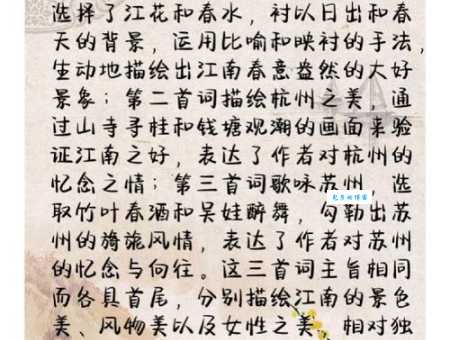 选择了江花和春水，衬以日出和春
天的背景，运用比喻和映衬的手法，
生动地描绘出江南春意盎然的大好
景象；第二首词描绘杭州之美，通
过山寺寻桂和钱塘观潮的画面来验
证江南之好，表达了作者对杭州的
忆念之情；第三首词歌咏苏州，选
取竹叶春酒和吴娃醉舞，勾勒出苏
州的旖旎风情，表达了作者对苏州
的忆念与向往。这三首词主旨相同
而各具首尾，分别描绘江南的景色
美、风物美以及女性之美，相对独